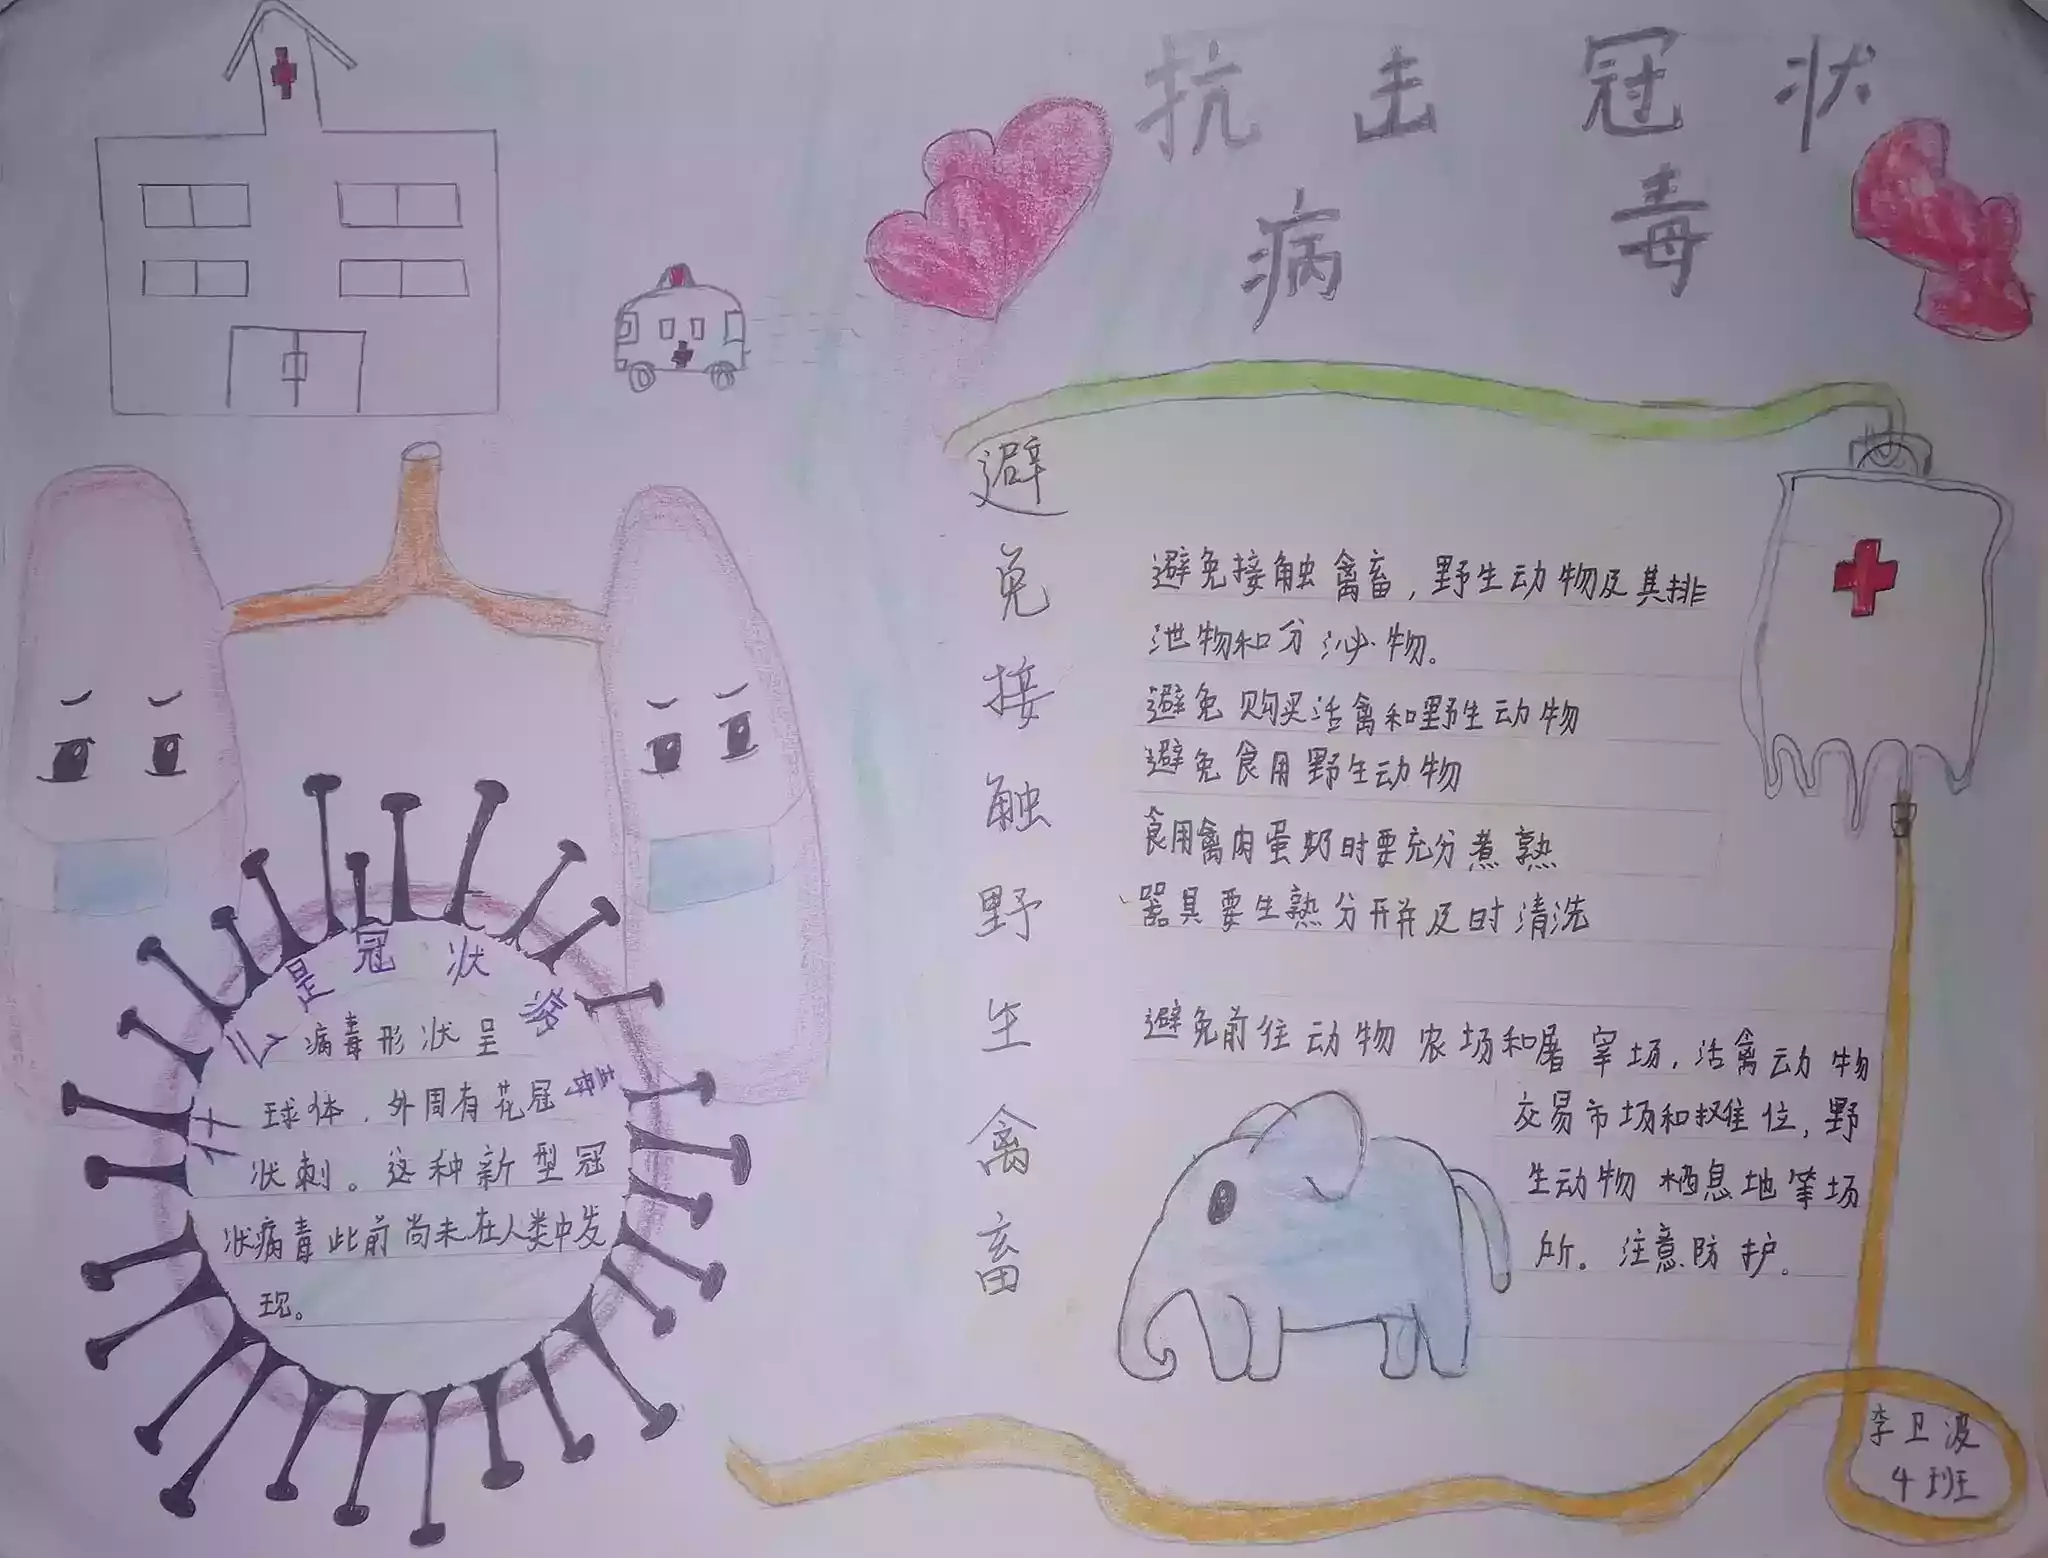 抗击冠状
病毒
什么是冠状病毒
病毒形状呈
球体，外周有花冠
状刺。这种新型冠
状病毒此前尚未在人类中发
现。
避免接触野生禽畜
避免接触禽畜，野生动物及其排
泄物和分泌物。
避免购买活禽和野生动物
避免食用野生动物
食用禽肉蛋奶时要充分煮熟
器具要生熟分开并及时清洗
避免前往动物农场和屠宰场，活禽动物
交易市场和摊位，野
生动物栖息地等场
所。注意防护。
李卫波
4班